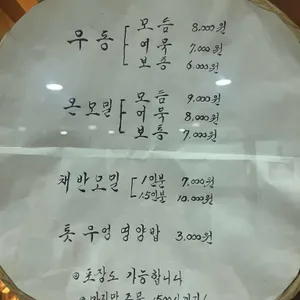 모듬 8,000원
우동 어묵 7,000원
보통 6,000원
모듬 9,000원
온모밀 어묵 8,000원
보통 7,000원
채반모밀 1인분 7,000원
1.5인분 10,000원
톳 우엉 영양밥 3,000원
포장도 가능합니다
마지막 주문